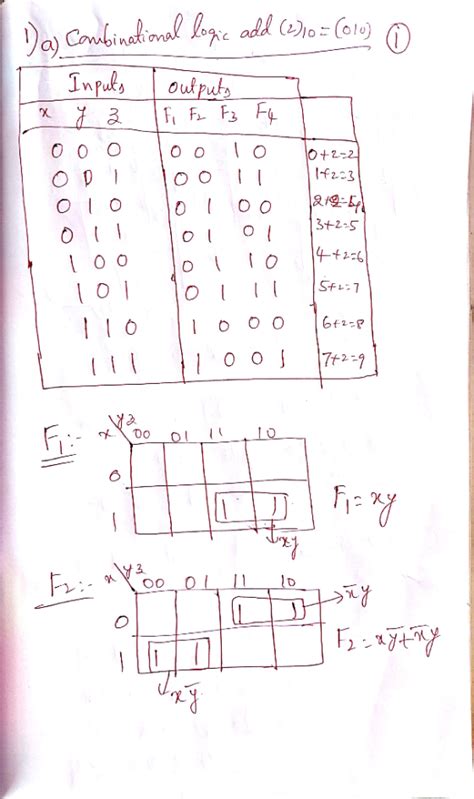 1) a) Combinational logic add (2)10 = (010) (i)
Inputs outputs
x y z F1 F2 F3 F4
0 0 0 0 0 1 0 0+2=2
0 0 1 0 0 1 1 1+2=3
0 1 0 0 1 0 0 2+2=4
0 1 1 0 1 0 1 3+2=5
1 0 0 0 1 1 0 4+2=6
1 0 1 0 1 1 1 5+2=7
1 1 0 1 0 0 0 6+2=8
1 1 1 1 0 0 1 7+2=9
F1:- x yz 00 01 11 10
0
1 1 1 F1 = xy
xy
F2:- x yz 00 01 11 10
0 1 1 x̄y
1 1 1 F2 = xȳ + x̄y
xȳ